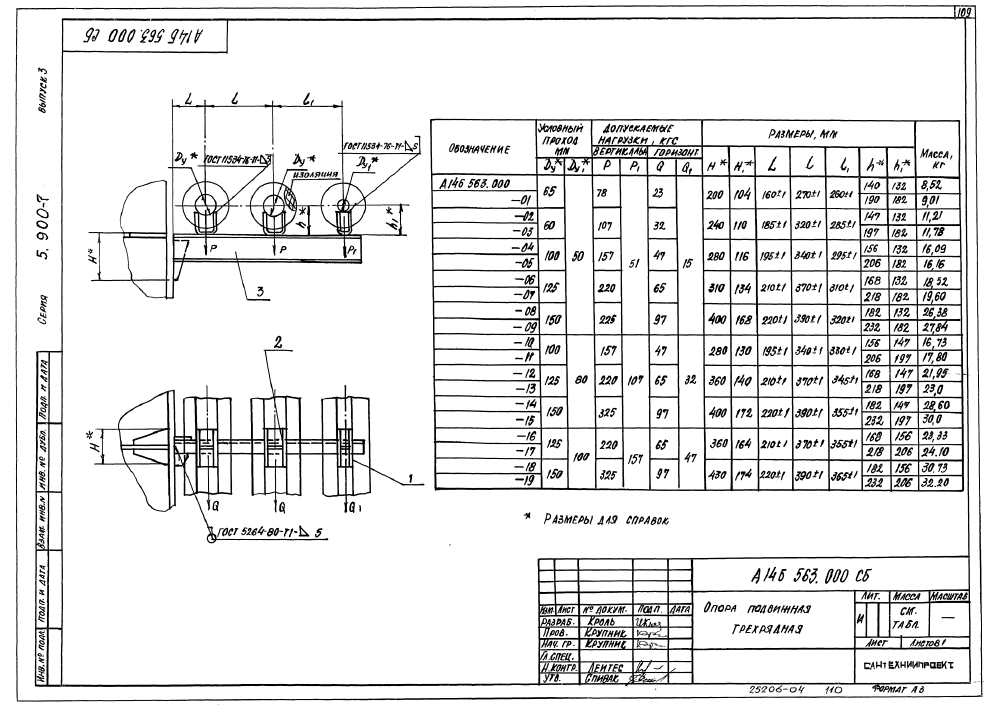 109
А14Б 563.000 СБ
Серия 5.900-7 выпуск 3
L l l₁
Dу* ГОСТ 11534-76-Т1-⊿3 Dу* ГОСТ 11534-76-Т1-⊿5 Dу₁*
изоляция
H* h* h₁*
P P P₁
3
2
H*
1
Q Q Q₁
ГОСТ 5264-80-Т1-⊿ 5
Обозначение | Условный проход мм | Допускаемые нагрузки, кгс | Размеры, мм | Масса, кг
Вертикальн | Горизонт
Dу* | Dу₁* | P | P₁ | Q | Q₁ | H* | H₁* | L | l | l₁ | h* | h₁*
А14Б 563.000 | 65 | 50 | 78 | 51 | 23 | 15 | 200 | 104 | 160±1 | 270±1 | 260±1 | 140 | 132 | 8,52
—01 | 190 | 182 | 9,01
—02 | 60 | 107 | 32 | 240 | 110 | 185±1 | 320±1 | 285±1 | 147 | 132 | 11,21
—03 | 197 | 182 | 11,78
—04 | 100 | 157 | 47 | 280 | 116 | 195±1 | 340±1 | 295±1 | 156 | 132 | 16,09
—05 | 206 | 182 | 16,16
—06 | 125 | 220 | 65 | 310 | 134 | 210±1 | 370±1 | 310±1 | 168 | 132 | 18,52
—07 | 218 | 182 | 19,60
—08 | 150 | 225 | 97 | 400 | 168 | 220±1 | 390±1 | 320±1 | 182 | 132 | 26,38
—09 | 232 | 182 | 27,84
—10 | 100 | 80 | 157 | 107 | 47 | 32 | 280 | 130 | 195±1 | 340±1 | 330±1 | 156 | 147 | 16,73
—11 | 206 | 197 | 17,80
—12 | 125 | 220 | 65 | 360 | 140 | 210±1 | 370±1 | 345±1 | 168 | 147 | 21,95
—13 | 218 | 197 | 23,0
—14 | 150 | 325 | 97 | 400 | 172 | 220±1 | 390±1 | 355±1 | 182 | 147 | 28,60
—15 | 232 | 197 | 30,0
—16 | 125 | 100 | 220 | 157 | 65 | 47 | 360 | 164 | 210±1 | 370±1 | 355±1 | 168 | 156 | 23,33
—17 | 218 | 206 | 24.10
—18 | 150 | 325 | 97 | 430 | 174 | 220±1 | 390±1 | 365±1 | 182 | 156 | 30,73
—19 | 232 | 206 | 32.20
* Размеры для справок
А14Б 563.000 СБ
Изм. Лист № докум. Подп. Дата
Разраб. Кроль
Пров. Крупник
Нач. гр. Крупник
Гл. спец.
Н. контр. Лейтес
Утв. Спивак
Опора подвижная
трехрядная
Лит. Масса Масштаб
И см. табл. —
Лист Листов 1
Сантехниипроект
25206-04 110 Формат А3
Инв. № подл. Подп. и дата Взам. инв. № Инв. № дубл. Подп. и дата